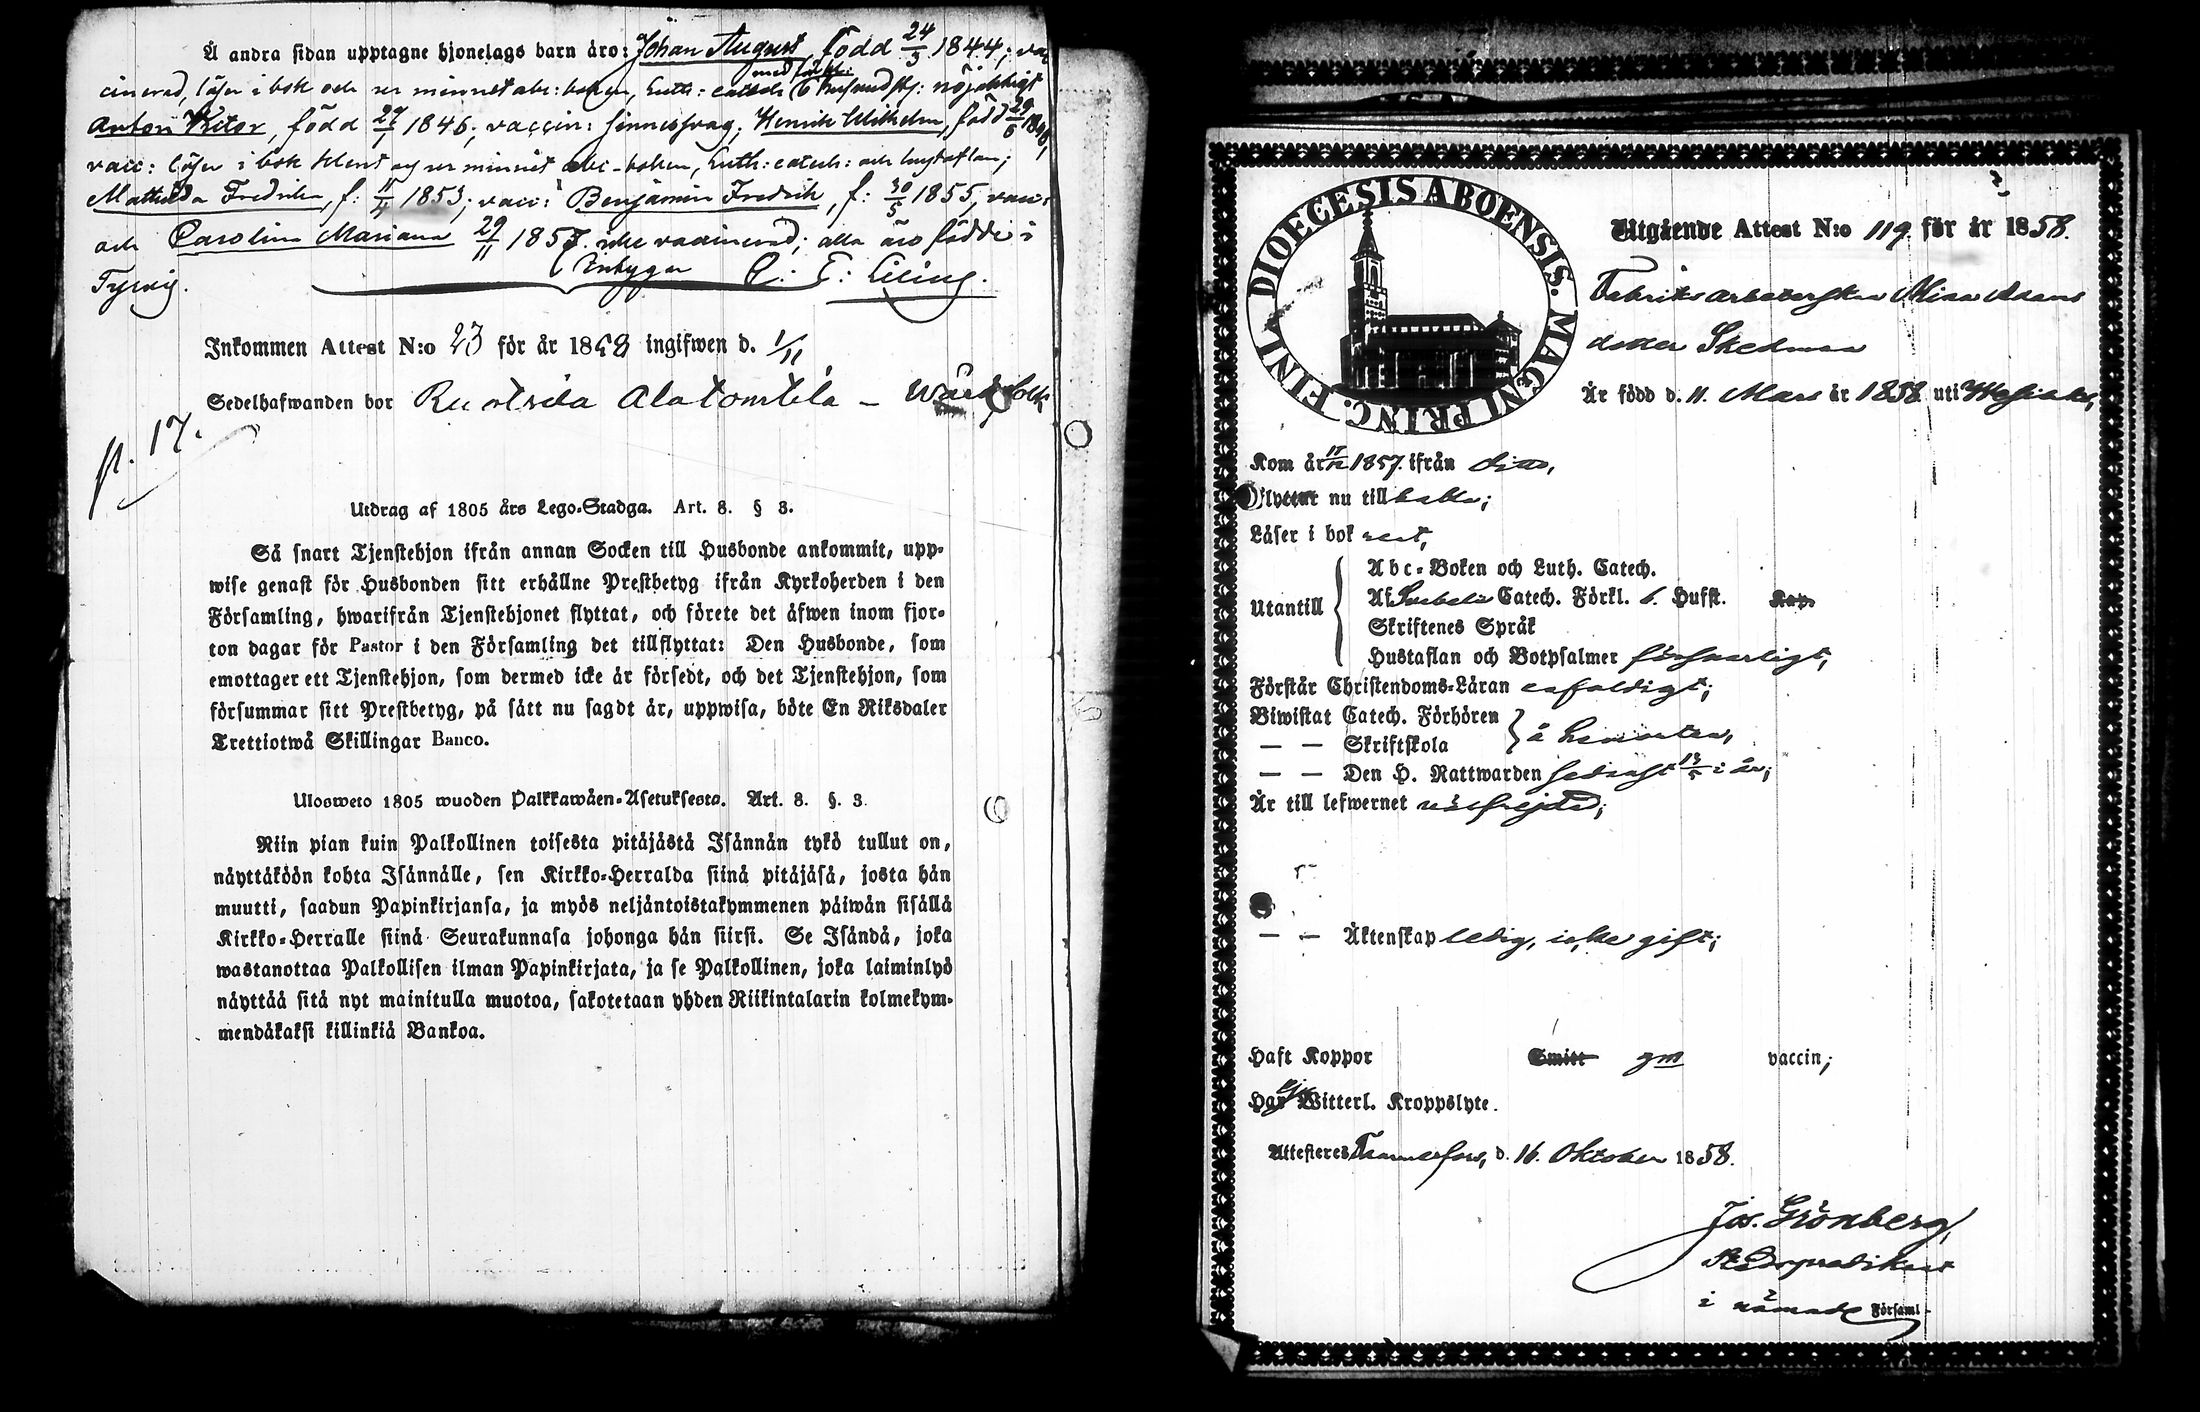 Å andra sidan upptagne hjonelags barn äro: Johan August, född 24/3 1844; vac
cinerad, läser i bok och ur minnet abc: boken, Luth: catech: med förkl: nöjaktigt
Anton Victor, född 27/1 1846; vaccin: sinnessvag; Henrik Wilhelm, född 29/6
vacc: läser i bok klent och ur minnet abc-boken, Luth: catech: och hustaflan;
Mathilda Fredrika, f: 11/4 1853; vacc: Benjamin Fredrik, f: 30/5 1855, vacc:
och Carolina Mariana 29/11 1857. icke vaccinerad; alla äro födde i
Tyrvis. Intygar
Inkommen Attest N:o 23 för år 1858 ingifwen d. 1/11
Sedelhafwanden bor Ruotsila Alatomtila –
p. 17.
Utdrag af 1805 års Lego-Stadga. Art. 8. § 3.
Så snart Tjenstehjon ifrån annan Socken till Husbonde ankommit, upp-
wise genast för Husbonden sitt erhållne Prestbetyg ifrån Kyrkoherden i den
Församling, hwarifrån Tjenstehjonet flyttat, och förete det äfwen inom fjor-
ton dagar för Pastor i den Församling det tillflyttat: Den Husbonde, som
emottager ett Tjenstehjon, som dermed icke är försedt, och det Tjenstehjon, som
försummar sitt Prestbetyg, på sätt nu sagdt är, uppwisa, böte En Riksdaler
Trettiotwå Skillingar Banco.
Ulosweto 1805 wuoden Palkkawäen-Asetuksesta. Art. 8. §. 3.
Niin pian kuin Palkollinen toisesta pitäjästä Isännän tykö tullut on,
näyttäköön kohta Isännälle, sen Kirkko-Herralda siinä pitäjäsä, josta hän
muutti, saadun Papinkirjansa, ja myös neljäntoistakymmenen päiwän sisällä
Kirkko-Herralle siinä Seurakunnasa johonga hän siirsi. Se Isändä, joka
wastanottaa Palkollisen ilman Papinkirjata, ja se Palkollinen, joka laiminlyö
näyttää sitä nyt mainitulla muotoa, sakotetaan yhden Riikintalarin kolmekym-
mendäkaksi killinkiä Bankoa.
DIOECESIS ABOENSIS. MAGNI PRINC. FINL.
Utgående Attest N:o 119 för år 1858.
Fabriks arbeterskan Mina Adams
dotter Skedman
Är född d. 11. Mars år 1838 uti
Kom år 1857. ifrån dito,
flyttar nu till
Läser i bok rent,
Utantill
Abc-Boken och Luth. Catech.
Af Svebelii Catech. Förkl. 6. Husst. Kap.
Skriftenes Språk
Hustaflan och Botpsalmer försvarligt,
Förstår Christendoms-Läran enfaldigt;
Biwistat Catech. Förhören
— — Skriftskola
å hemorten,
— — Den H. Nattwarden sednast 13/5 i år;
Är till lefwernet wälfrejdad;
— — Äktenskap ledig, icke gift;
Haft Koppor Smitt gm vaccin;
Har Ej Witterl. Kroppslyte.
Attesteres Tammerfors, d. 16. Oktober 1858.
Jos. Grönberg,
i nämnde Församl